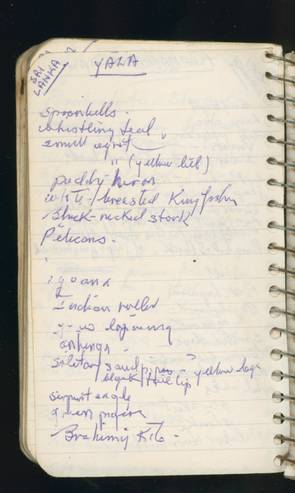 SRI
LANKA
YALA
spoonbills.
whistling teal,
small egret
" (yellow bill)
paddy heron
white/breasted Kingfisher
black-necked stork
Pelicans.
iguana
Indian roller
lapwing
solitary sandpiper
black tail tip yellow legs
serpent eagle
green pigeon
Brahminy Kite.